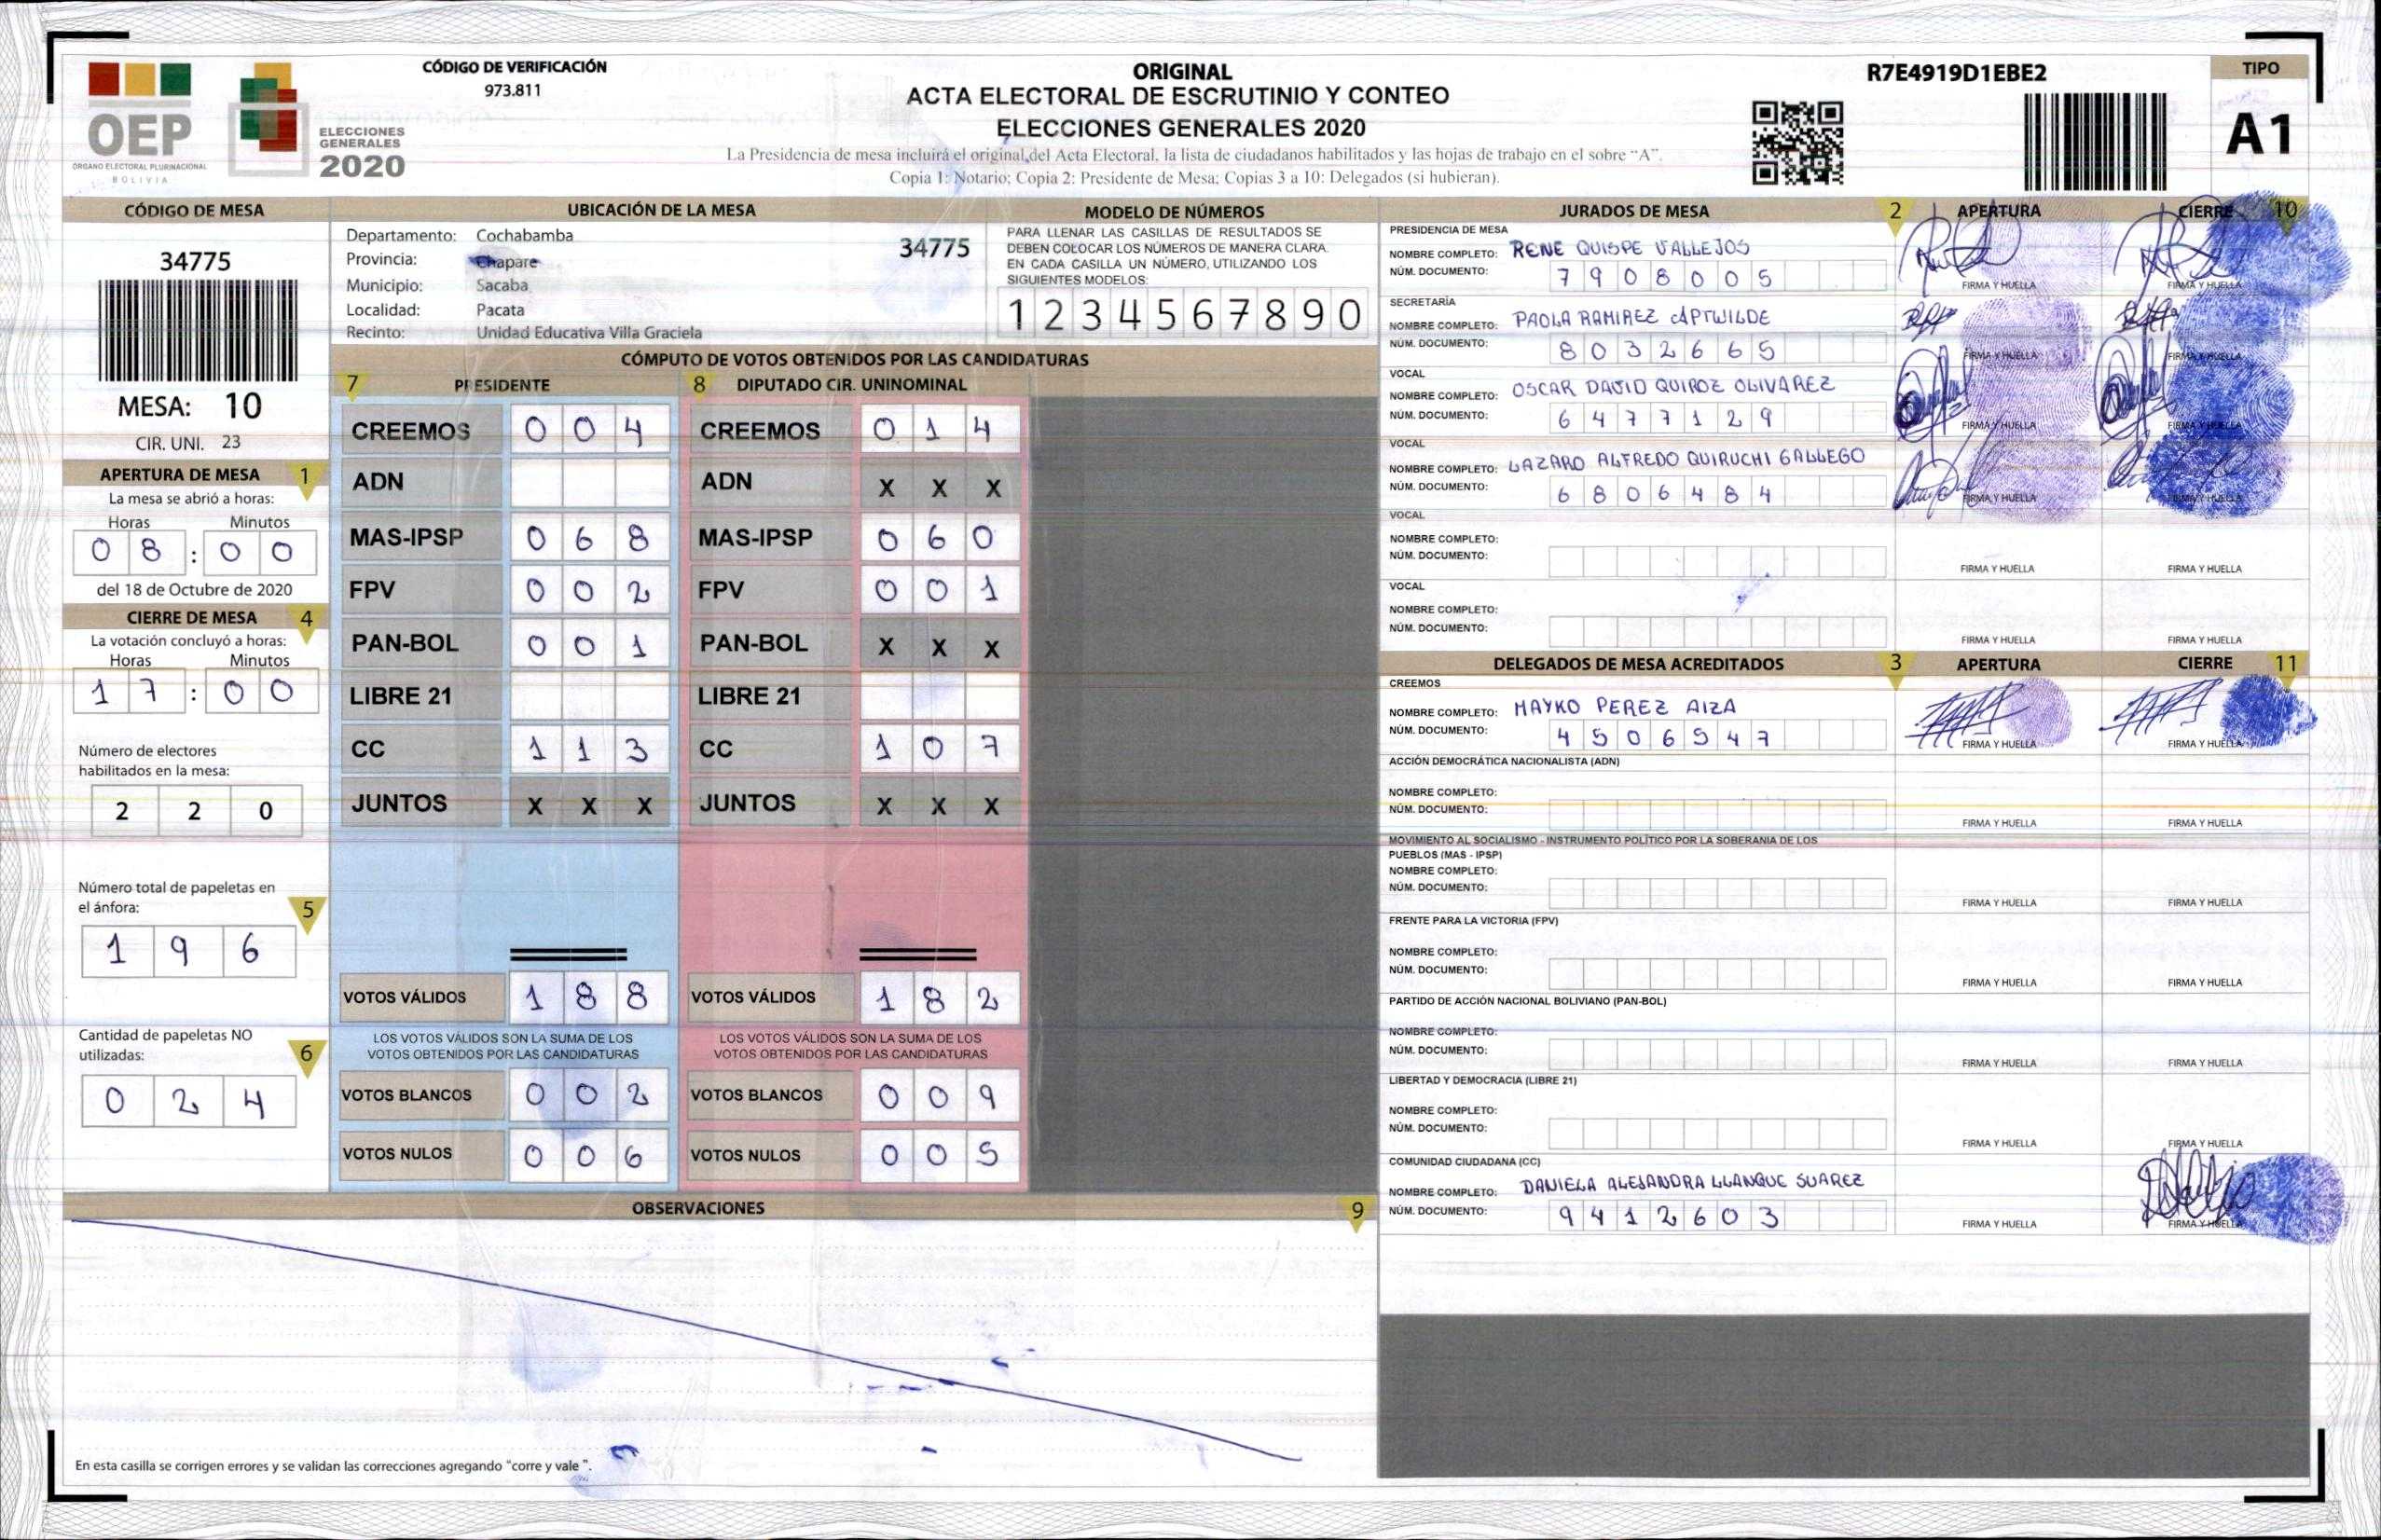 OEP
ÓRGANO ELECTORAL PLURINACIONAL
BOLIVIA
ELECCIONES
GENERALES
2020
CÓDIGO DE VERIFICACIÓN
973.811
ORIGINAL
ACTA ELECTORAL DE ESCRUTINIO Y CONTEO
ELECCIONES GENERALES 2020
La Presidencia de mesa incluirá el original del Acta Electoral, la lista de ciudadanos habilitados y las hojas de trabajo en el sobre "A".
Copia 1: Notario; Copia 2: Presidente de Mesa; Copias 3 a 10: Delegados (si hubieran).
R7E4919D1EBE2
TIPO
A1
CÓDIGO DE MESA
34775
MESA: 10
CIR. UNI. 23
APERTURA DE MESA 1
La mesa se abrió a horas:
Horas Minutos
0 8 : 0 0
del 18 de Octubre de 2020
CIERRE DE MESA 4
La votación concluyó a horas:
Horas Minutos
1 7 : 0 0
Número de electores
habilitados en la mesa:
2 2 0
Número total de papeletas en
el ánfora: 5
1 9 6
Cantidad de papeletas NO
utilizadas: 6
0 2 4
UBICACIÓN DE LA MESA
Departamento: Cochabamba
34775
Provincia: Chapare
Municipio: Sacaba
Localidad: Pacata
Recinto: Unidad Educativa Villa Graciela
MODELO DE NÚMEROS
PARA LLENAR LAS CASILLAS DE RESULTADOS SE
DEBEN COLOCAR LOS NÚMEROS DE MANERA CLARA.
EN CADA CASILLA UN NÚMERO, UTILIZANDO LOS
SIGUIENTES MODELOS:
1 2 3 4 5 6 7 8 9 0
CÓMPUTO DE VOTOS OBTENIDOS POR LAS CANDIDATURAS
7 PRESIDENTE 8 DIPUTADO CIR. UNINOMINAL
CREEMOS 0 0 4 CREEMOS 0 1 4
ADN ADN X X X
MAS-IPSP 0 6 8 MAS-IPSP 0 6 0
FPV 0 0 2 FPV 0 0 1
PAN-BOL 0 0 1 PAN-BOL X X X
LIBRE 21 LIBRE 21
CC 1 1 3 CC 1 0 7
JUNTOS X X X JUNTOS X X X
VOTOS VÁLIDOS 1 8 8 VOTOS VÁLIDOS 1 8 2
LOS VOTOS VÁLIDOS SON LA SUMA DE LOS LOS VOTOS VÁLIDOS SON LA SUMA DE LOS
VOTOS OBTENIDOS POR LAS CANDIDATURAS VOTOS OBTENIDOS POR LAS CANDIDATURAS
VOTOS BLANCOS 0 0 2 VOTOS BLANCOS 0 0 9
VOTOS NULOS 0 0 6 VOTOS NULOS 0 0 5
OBSERVACIONES 9
En esta casilla se corrigen errores y se validan las correcciones agregando "corre y vale ".
JURADOS DE MESA 2 APERTURA CIERRE 10
PRESIDENCIA DE MESA
NOMBRE COMPLETO: RENE QUISPE VALLEJOS
NÚM. DOCUMENTO: 7 9 0 8 0 0 5
FIRMA Y HUELLA FIRMA Y HUELLA
SECRETARÍA
NOMBRE COMPLETO: PAOLA RAMIREZ
NÚM. DOCUMENTO: 8 0 3 2 6 6 5
FIRMA Y HUELLA FIRMA Y HUELLA
VOCAL
NOMBRE COMPLETO: OSCAR DAVID QUIROZ OLIVAREZ
NÚM. DOCUMENTO: 6 4 7 7 1 2 9
FIRMA Y HUELLA FIRMA Y HUELLA
VOCAL
NOMBRE COMPLETO: LAZARO ALFREDO QUIRUCHI GALLEGO
NÚM. DOCUMENTO: 6 8 0 6 4 8 4
FIRMA Y HUELLA FIRMA Y HUELLA
VOCAL
NOMBRE COMPLETO:
NÚM. DOCUMENTO:
FIRMA Y HUELLA FIRMA Y HUELLA
VOCAL
NOMBRE COMPLETO:
NÚM. DOCUMENTO:
FIRMA Y HUELLA FIRMA Y HUELLA
DELEGADOS DE MESA ACREDITADOS 3 APERTURA CIERRE 11
CREEMOS
NOMBRE COMPLETO: MAYKO PEREZ AIZA
NÚM. DOCUMENTO: 4 5 0 6 5 4 7
FIRMA Y HUELLA FIRMA Y HUELLA
ACCIÓN DEMOCRÁTICA NACIONALISTA (ADN)
NOMBRE COMPLETO:
NÚM. DOCUMENTO:
FIRMA Y HUELLA FIRMA Y HUELLA
MOVIMIENTO AL SOCIALISMO - INSTRUMENTO POLÍTICO POR LA SOBERANIA DE LOS
PUEBLOS (MAS - IPSP)
NOMBRE COMPLETO:
NÚM. DOCUMENTO:
FIRMA Y HUELLA FIRMA Y HUELLA
FRENTE PARA LA VICTORIA (FPV)
NOMBRE COMPLETO:
NÚM. DOCUMENTO:
FIRMA Y HUELLA FIRMA Y HUELLA
PARTIDO DE ACCIÓN NACIONAL BOLIVIANO (PAN-BOL)
NOMBRE COMPLETO:
NÚM. DOCUMENTO:
FIRMA Y HUELLA FIRMA Y HUELLA
LIBERTAD Y DEMOCRACIA (LIBRE 21)
NOMBRE COMPLETO:
NÚM. DOCUMENTO:
FIRMA Y HUELLA FIRMA Y HUELLA
COMUNIDAD CIUDADANA (CC)
NOMBRE COMPLETO: DANIELA ALEJANDRA LLANQUE SUAREZ
NÚM. DOCUMENTO: 9 4 1 2 6 0 3
FIRMA Y HUELLA FIRMA Y HUELLA